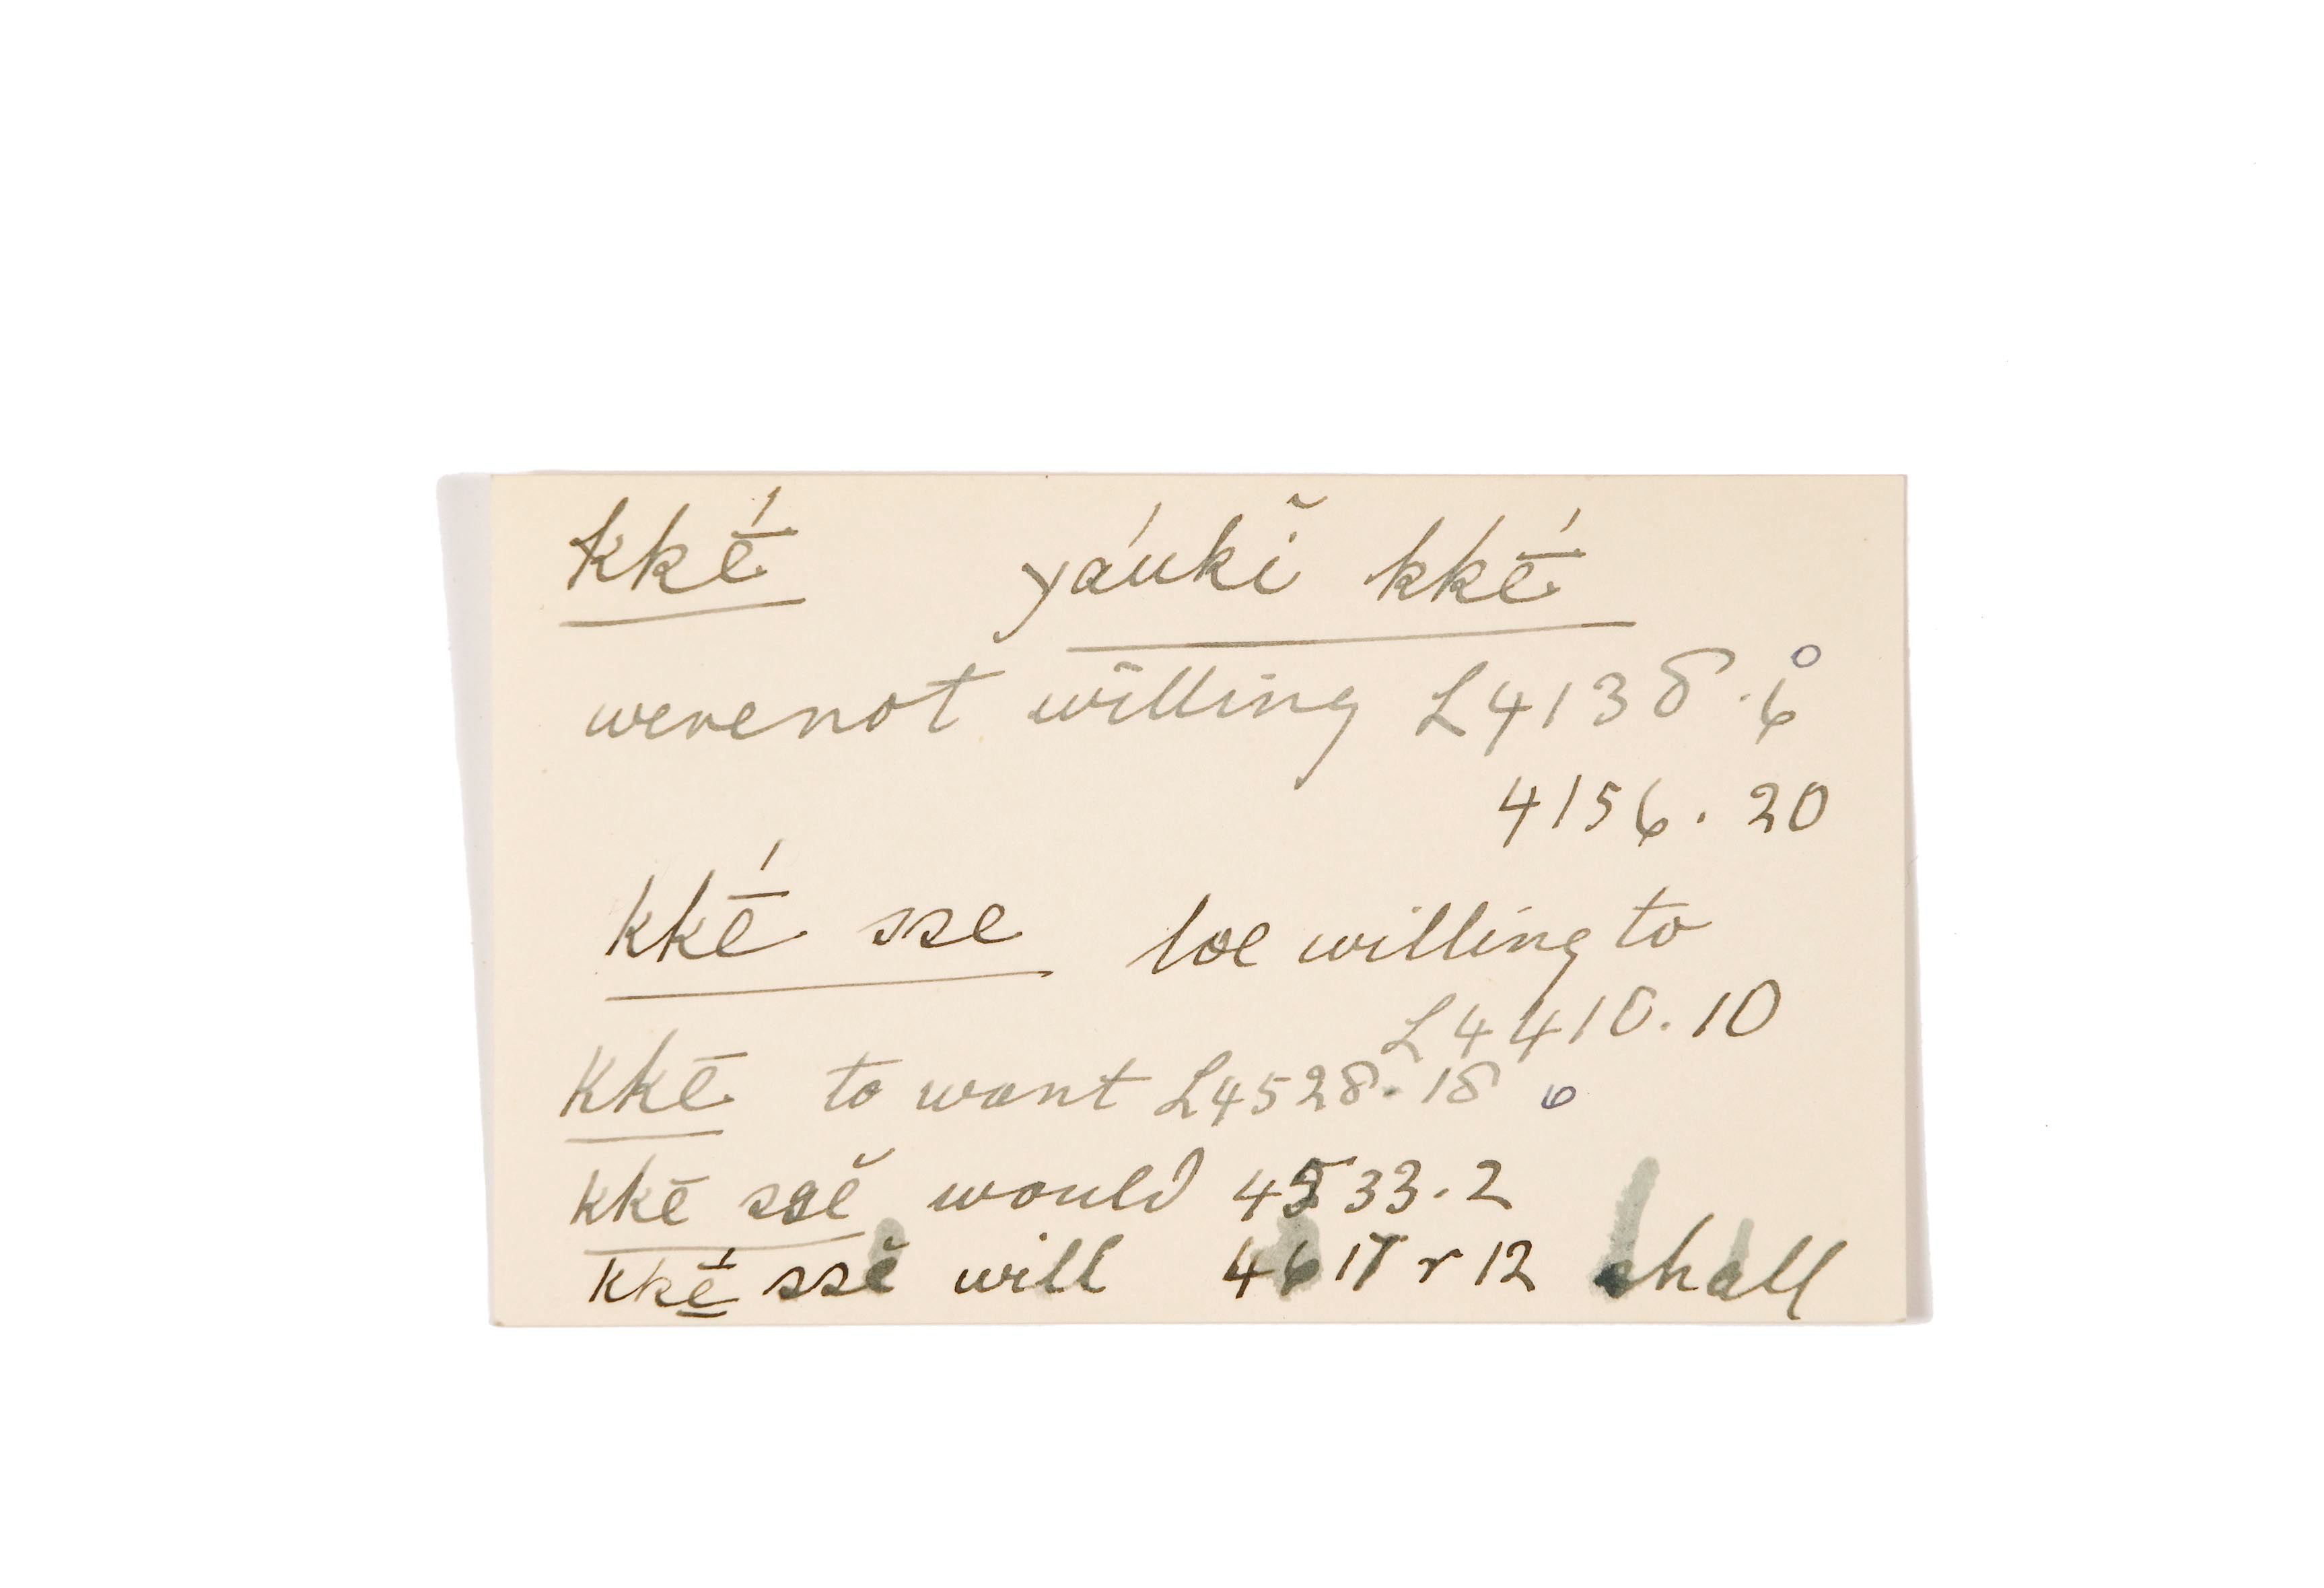 kkḗ yáukĭ kkḗ
werenot willing L4138.6
4156.20
kkḗ sse be willing to
L4410.10
Kkē to want L4528.18
kkē ssĕ would 4533.2
kkḗ ssĕ will 4617 r 12 shall